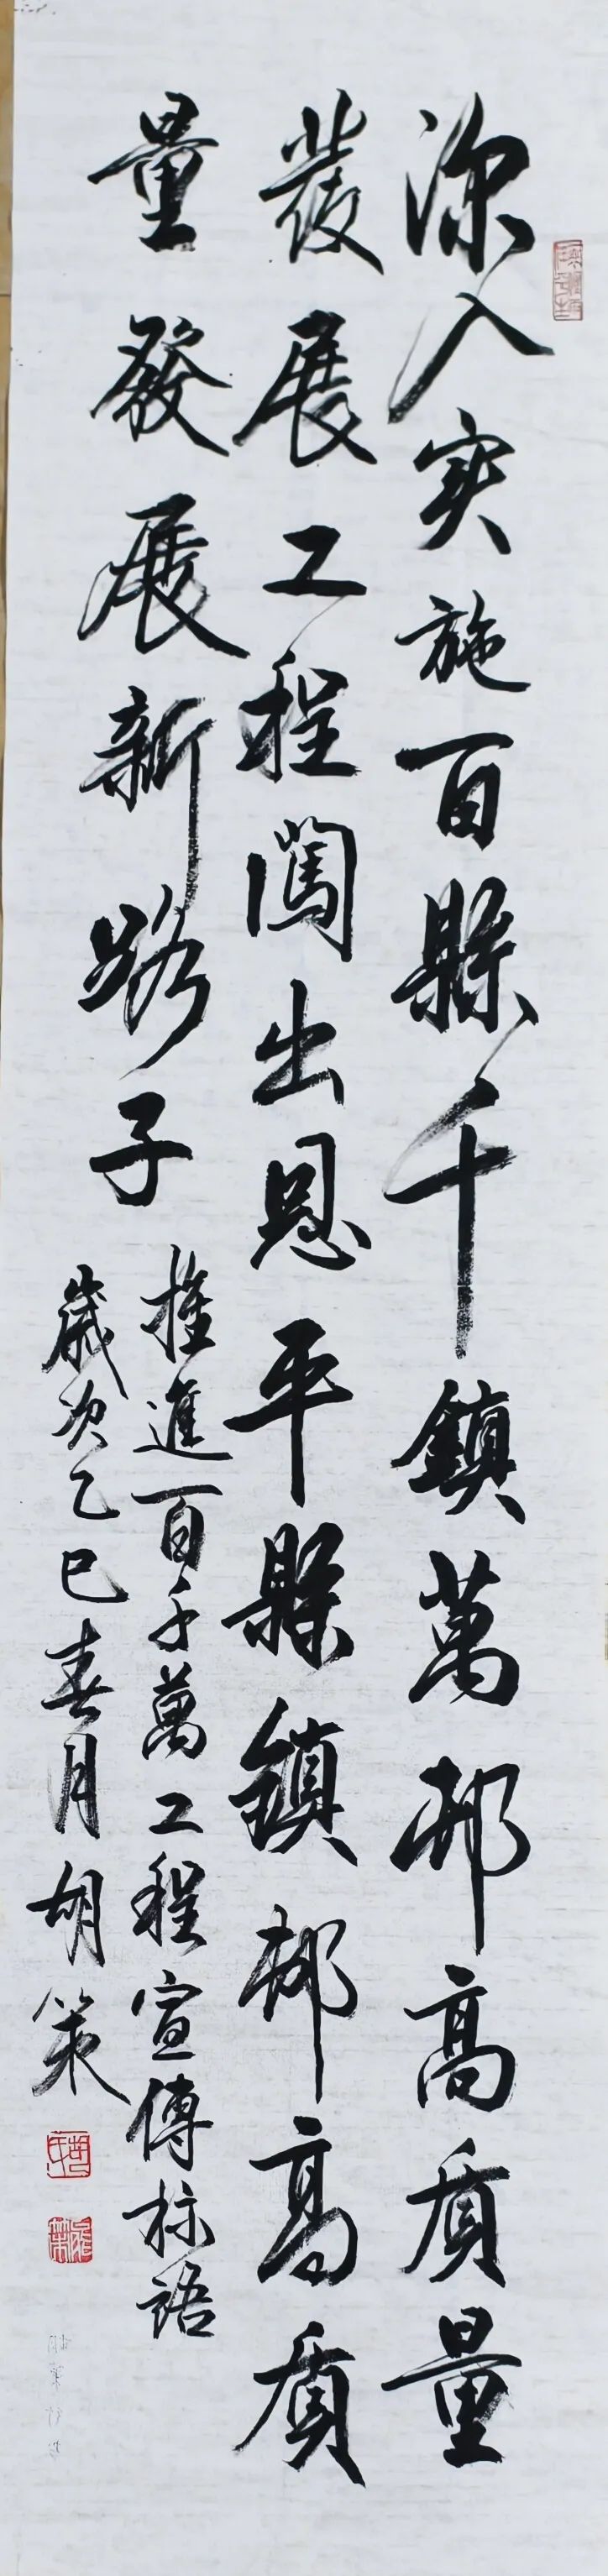 深入实施百縣千鎮萬邨高质量
發展工程闖出恩平縣鎮邨高质
量發展新路子
推進百千萬工程宣傳标語
歲次乙巳春月胡策